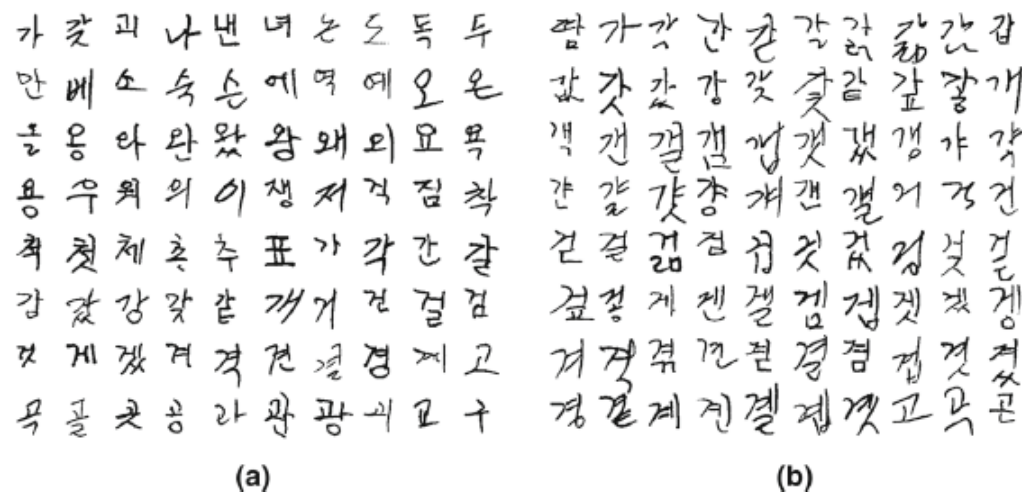 가 갖 괴 나 낸 녀 는 도 독 두
만 베 소 숙 슨 에 역 예 오 온
올 옹 와 완 왔 왕 왜 외 요 욕
용 우 의 이 생 저 직 짐 착
첫 체 추 표 가 각 간 갈
감 갔 강 갖 같 개 거 건 걸 검
것 게 겠 겨 격 견 결 경 계 고
곡 골 곳 공 과 관 광 괴 교 구
(a)
땀 가 각 간 갇 갈 갉 갊 감 갑
값 갓 갔 강 갖 갗 같 갚 갛 개
객 갠 갤 갬 갭 갯 갰 갱 갸 갹
갼 걀 걋 걍 걔 걘 걜 거 걱 건
걷 걸 걺 검 겁 것 겄 겅 겆 겉
겊 겋 게 겐 겔 겜 겝 겟 겠 겡
겨 격 겪 견 겯 결 겸 겹 겻 겼
경 곁 계 곈 곌 곕 곗 고 곡 곤
(b)